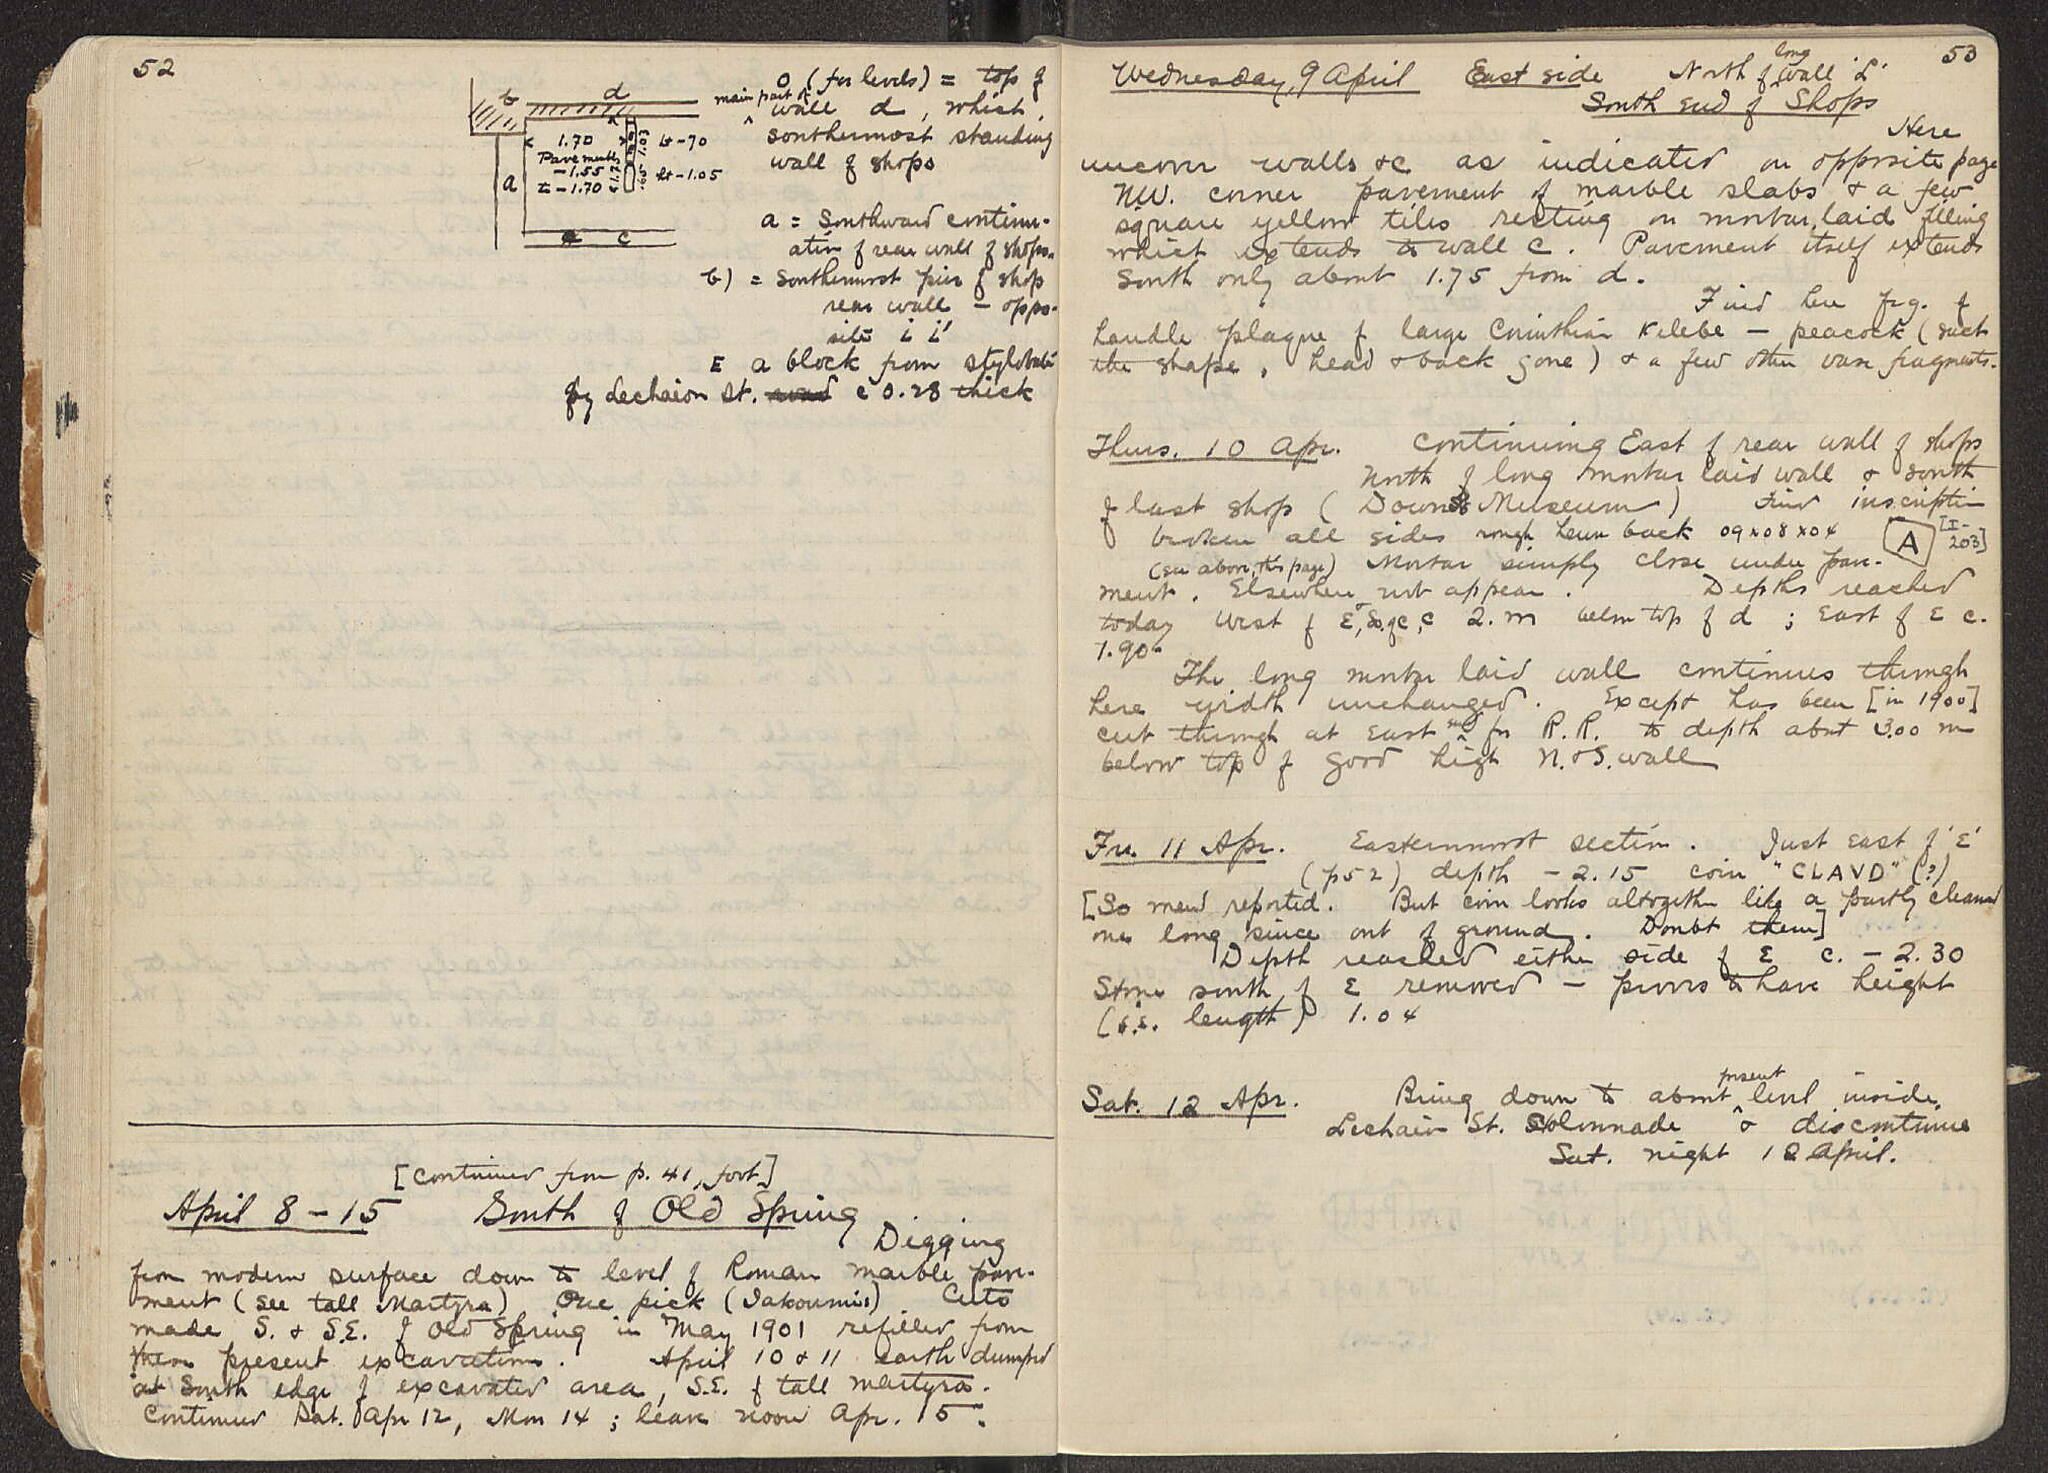 52
b
d
1.70
1.03
lt -70
Pavements
-1.55
a
to -1.70
.65
lt -1.05
c
0 (for levels) = top of
main part of
wall d, which,
southermost standing
wall of shops
a = Southward continu-
ation of rear wall of shops.
b) = Southernmost pier of shop
rear wall - oppo-
site i i'
E a block from stylobate
of Lechaion St. road c 0.28 thick
[continued from p. 41, foot]
April 8 - 15 South of Old Spring
Digging
from modern surface down to level of Roman marble pave-
ment (see tall Martyra) One pick (Iakoumis) Cuts
made S. & S.E. of Old Spring in May 1901 refilled from
then present excavations. April 10 & 11 earth dumped
at South edge of excavated area, S.E. of tall martyra.
Continued Sat. Apr 12, Mon 14; leave noon Apr. 15.
53
Wednesday, 9 April East side North of long wall 'L'
South end of Shops
Here
uncover walls &c as indicated on opposite page
NW. corner pavement of marble slabs & a few
square yellow tiles resting on mortar laid filling
which extends to wall c. Pavement itself extends
South only about 1.75 from d.
Find here frg. of
handle plaque of large Corinthian Kelebe - peacock (such
the shape, head & back gone) & a few other vase fragments.
Thurs. 10 Apr. Continuing East of rear wall of shops
North of long mortar laid wall & south
of last shop (Down to Museum) Find inscription
broken all sides rough hewn back 09 x 08 x 04 A [I-203]
(see above, this page) Mortar simply close under pave-
ment. Elsewhere not appear. Depths reached
today West of E, & So. of C, c 2. m below top of d; East of E c.
1.90.
The long mortar laid wall continues through
here width unchanged. Except has been [in 1900]
cut through at East end for R.R. to depth about 3.00 m
below top of good high N. & S. wall
Fri. 11 Apr. Easternmost section. Just East of 'E'
(p52) depth - 2.15 coin "CLAVD" (?)
[So men reported. But coin looks altogether like a partly cleaned
one long since out of ground. Doubt them]
Depth reached either side of E c. - 2.30
Stone south of E removed - proves to have height
(i.e. length) 1.04
Sat. 12 Apr. Bring down to about present level inside
Lechaion St. Colonnade & discontinue
Sat. night 12 April.